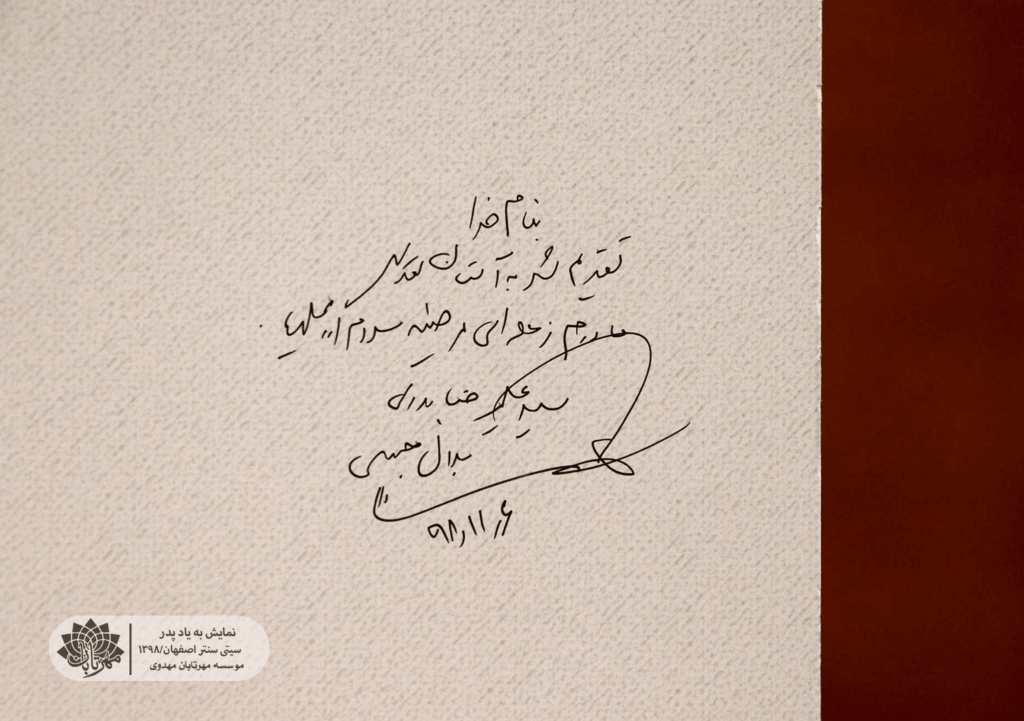 بنام خدا
تقدیم شد به آستان مقدس
مادرم زهرای مرضیه سلام الله علیها
سید علیرضا بدری
۹۸٫۱۱٫۶
نمایش به یاد پدر
سیتی سنتر اصفهان/۱۳۹۸
موسسه مهرتابان مهدوی
مهرتابان